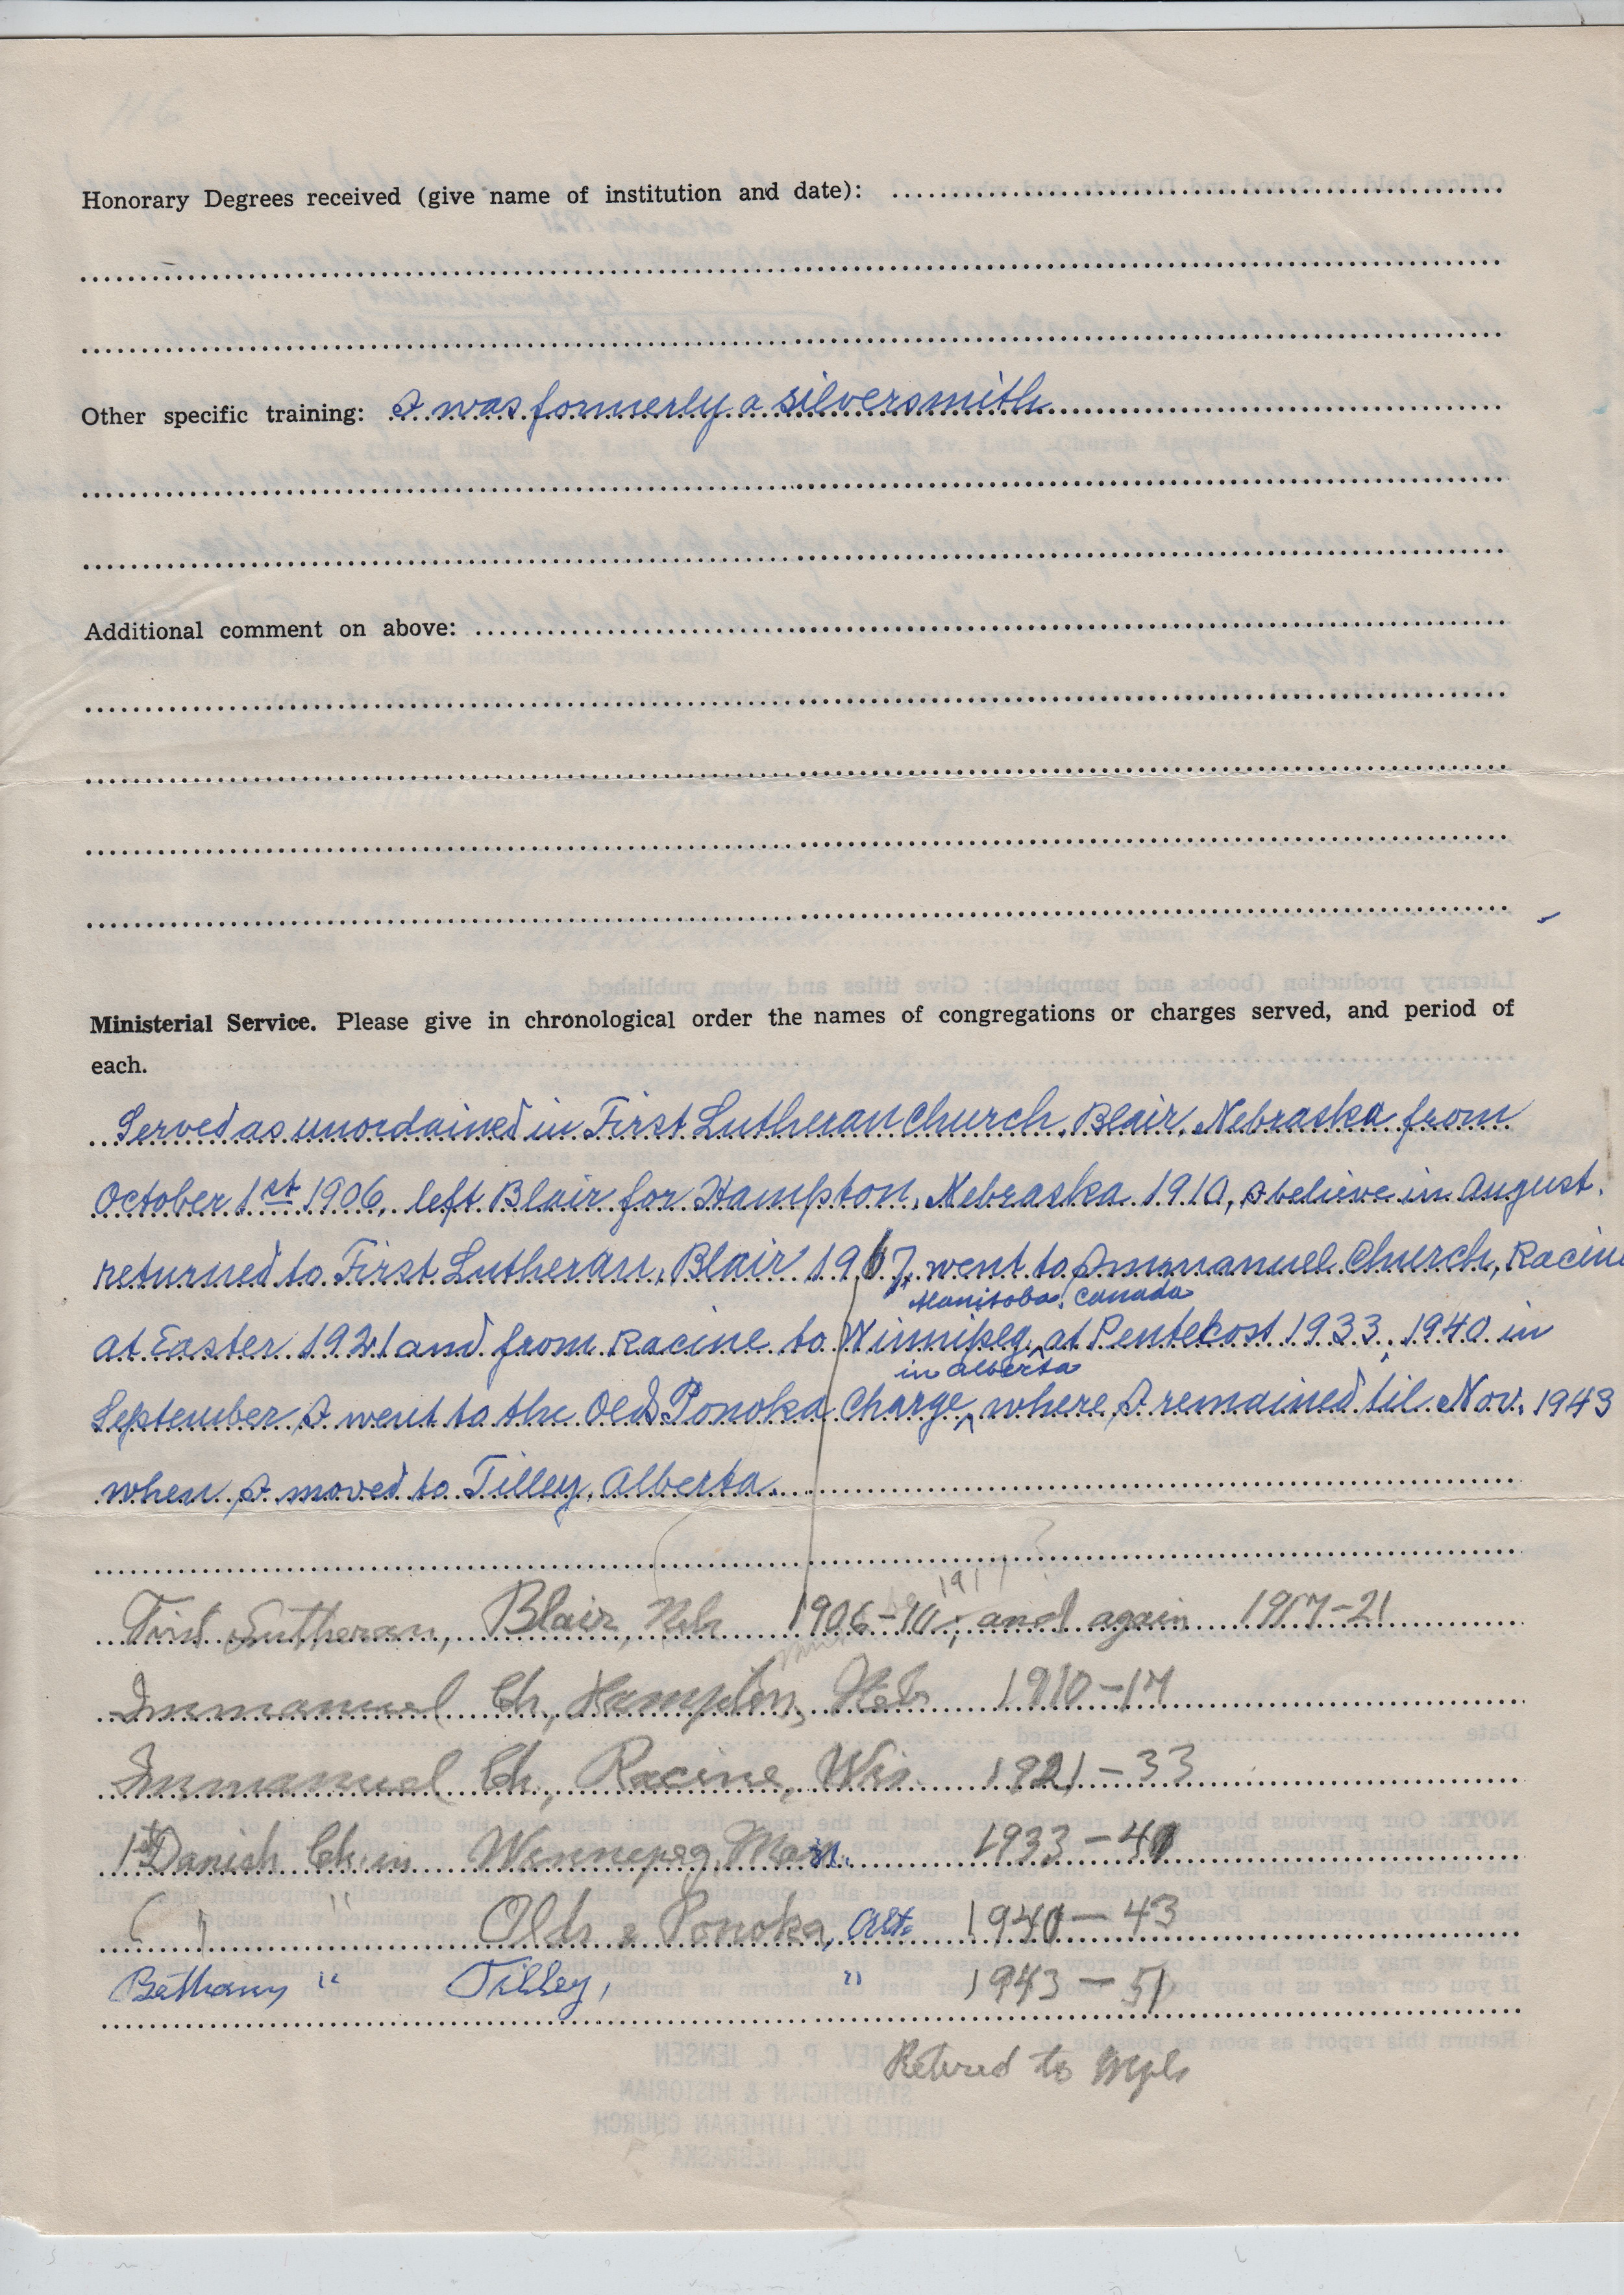 116
Honorary Degrees received (give name of institution and date):
Other specific training: I was formerly a silversmith
Additional comment on above:
Ministerial Service. Please give in chronological order the names of congregations or charges served, and period of
each.
Served as unordained in First Lutheran Church, Blair, Nebraska from
October 1st 1906, left Blair for Hampton, Nebraska 1910, I believe in August.
returned to First Lutheran, Blair 1917, went to Immanuel Church, Racine
Manitoba, Canada
at Easter 1921 and from Racine to Winnipeg, at Pentekost 1933. 1940 in
in Alberta
September I went to the Olds Ponoka Charge, where I remained til Nov. 1943
when I moved to Tilley, Alberta.
1917?
First Lutheran, Blair, Neb 1906-10; and again 1917-21
Immanuel Ch, Hampton, Nebr 1910-17
Immanuel Ch, Racine, Wis. 1921-33
1st Danish Ch. in Winnepeg, Man. 1933-40
( " " Olds & Ponoka, Alt. 1940-43
Bethany " Tilley, " 1943-51
Retired to Mpls
REV. P. C. JENSEN
STATISTICIAN & HISTORIAN
UNITED EV. LUTHERAN CHURCH
BLAIR, NEBRASKA